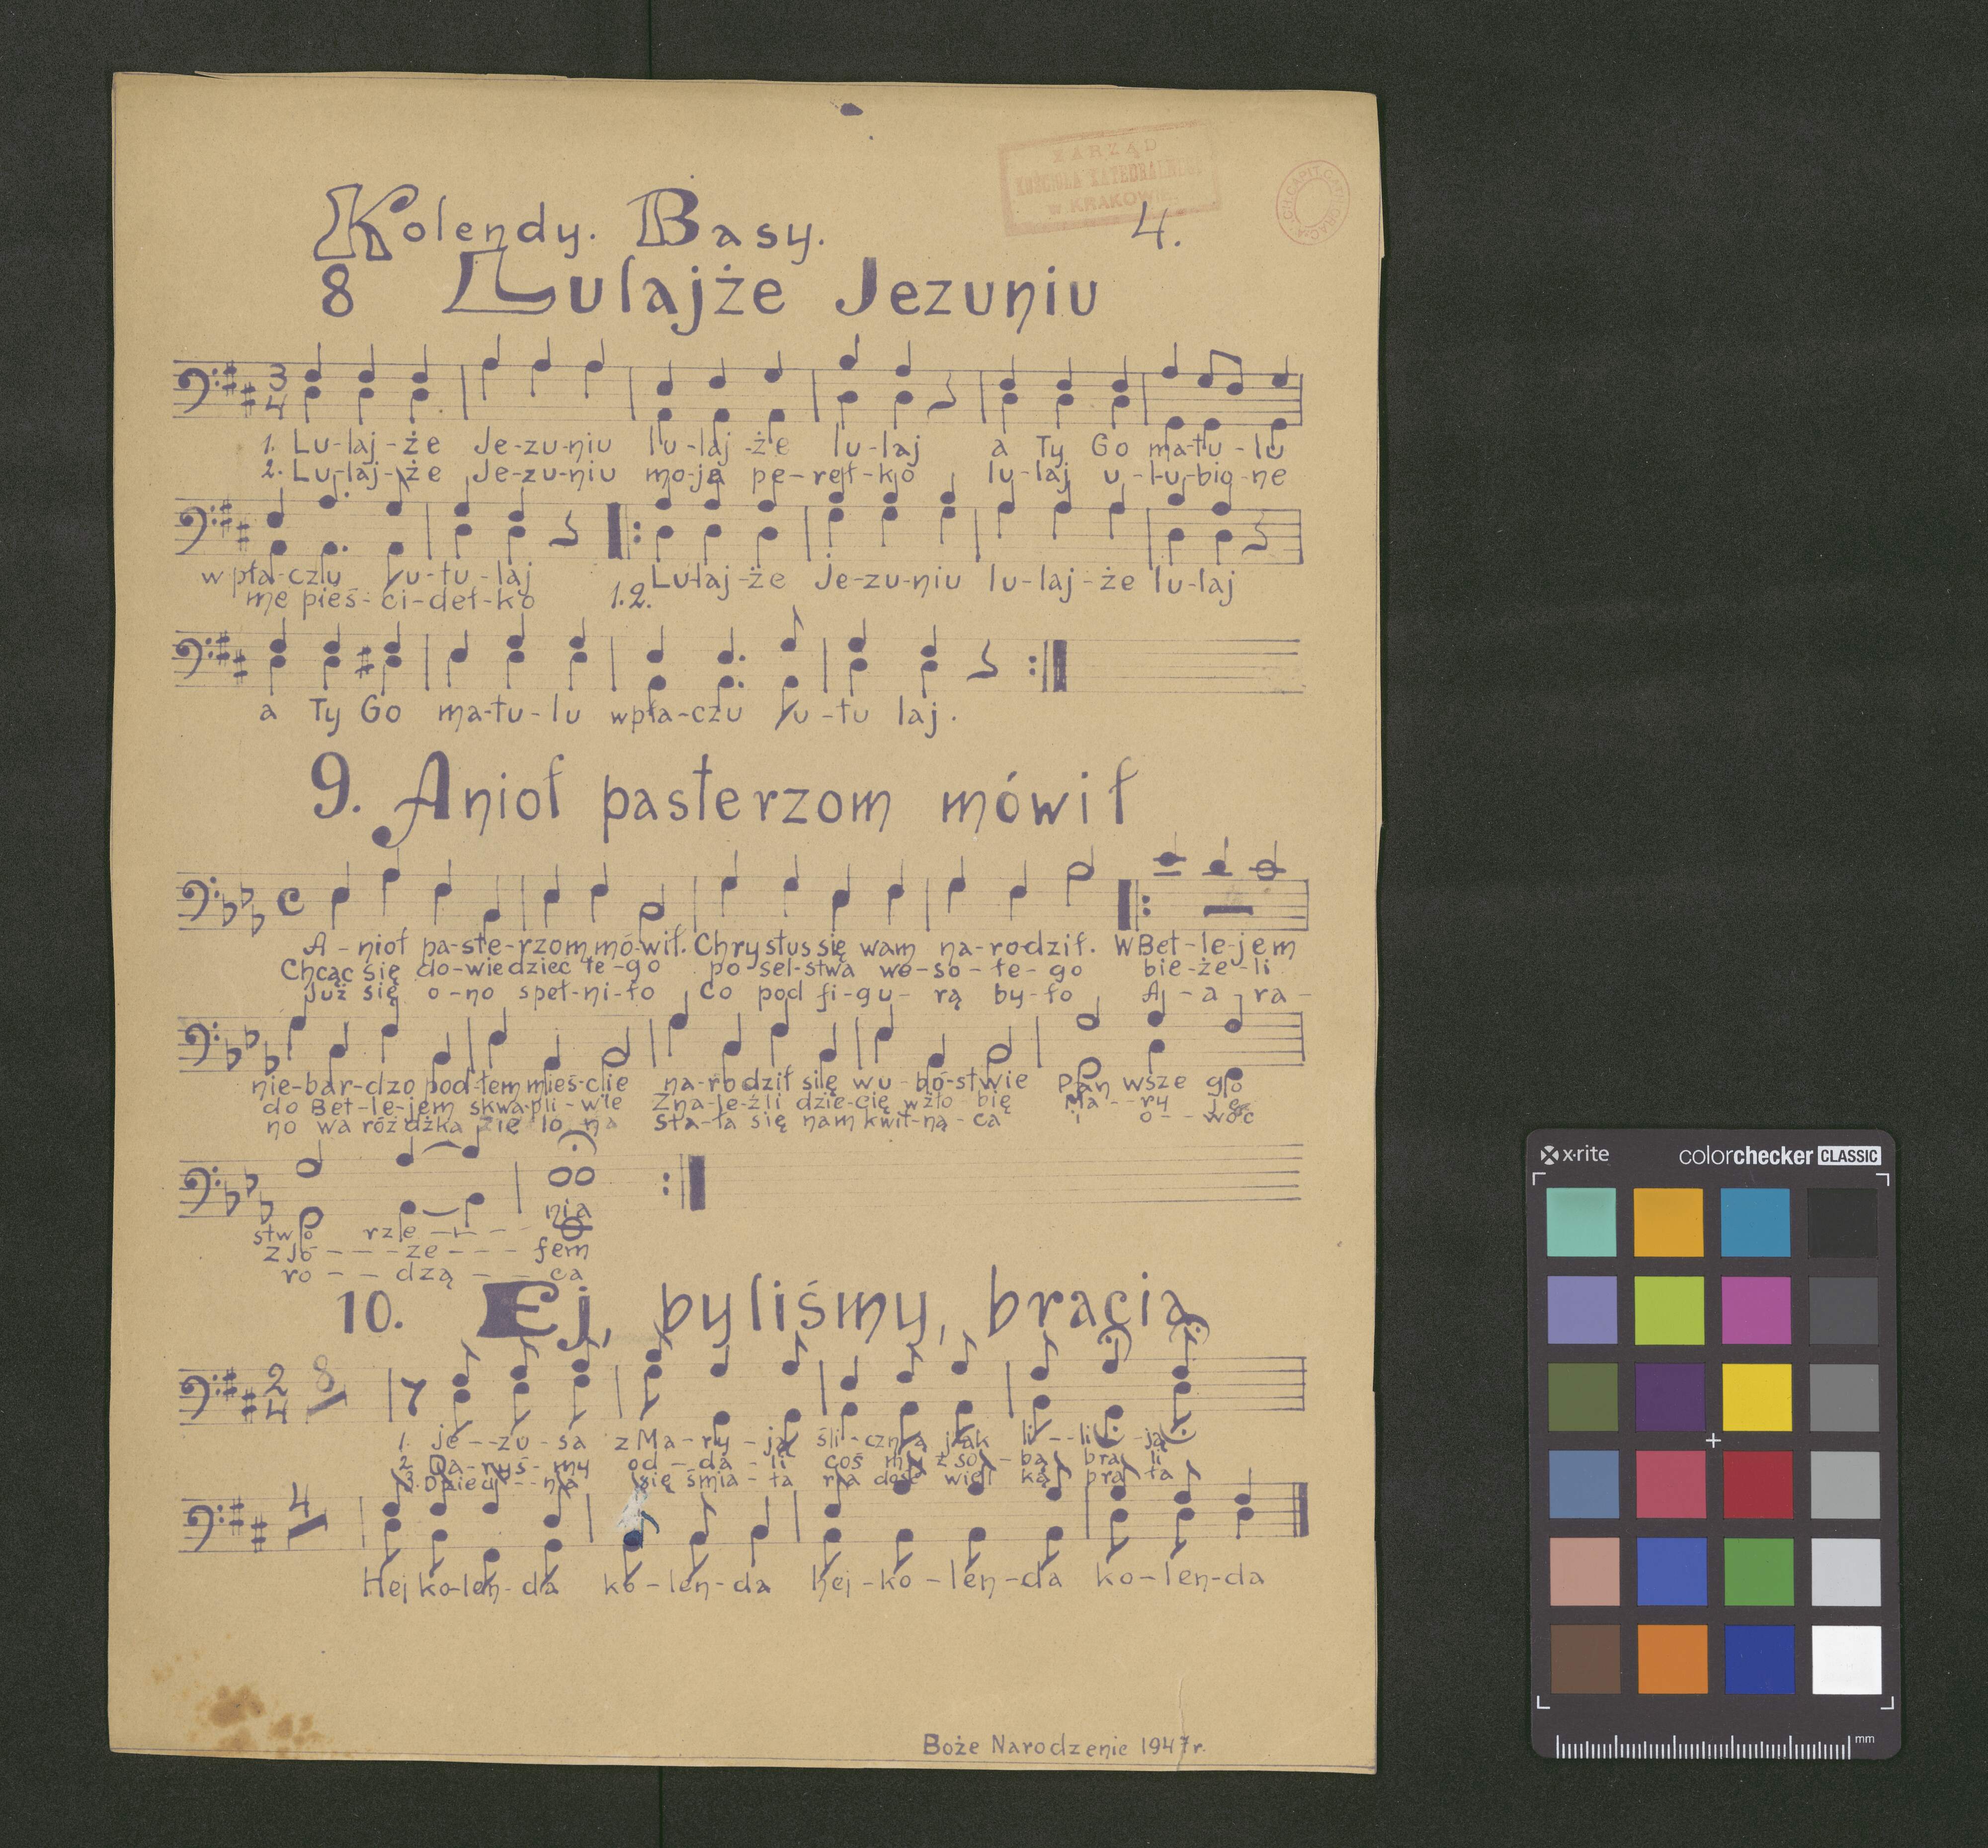 ZARZĄD
KOŚCIOŁA KATEDRALNEGO
W KRAKOWIE
Kolendy. Basy. 4.
8 Lulajże Jezuniu
3
4
1. Lu-laj-że Je-zu-niu lu-laj-że lu-laj a Ty Go ma-tu-lu
2. Lu-laj-że Je-zu-niu mo-ja pe-reł-ko lu-laj u-lu-bio-ne
w pła-czu u-tu-laj 1.2. Lu-laj-że Je-zu-niu lu-laj-że lu-laj
me pieś-ci-deł-ko
a Ty Go ma-tu-lu w pła-czu u-tu laj.
9. Anioł pasterzom mówił
C
A-nioł pa-ste-rzom mó-wił. Chrystus się wam na-rodził. W Bet-le-jem
Chcąc się do-wiedzieć te-go po-sel-stwa we-so-łe-go bie-że-li
Już się o-no speł-ni-ło Co pod fi-gu-rą by-ło A-a-ra-
nie-bar-dzo pod-łem mieś-cie na-rodził się wu-bó-stwie Pan wsze go
do Bet-le-jem skwa-pli-wie Zna-le-źli dzie-cię w żło bię Ma--ry Je
no wa różdżka zie lo na Sta-ła się nam kwit-ną-ca i o--woc
stwo rze--- nia
z Jó----ze--- fem
ro -- dzą -- ca
10. Ej, byliśmy, bracia
2
4
8
1. Je--zu-sa z Ma-ry-ją śli-czną jak li--li-ją
2. Da-ryś-my od-da-li coś my z so-bą bra li
3. Dzieci---na się śmia-ła ra dość wiel ką bra ła
4
Hej ko-len-da ko-len-da hej-ko-len-da ko-len-da
Boże Narodzenie 1947r.
x-rite colorchecker CLASSIC
mm